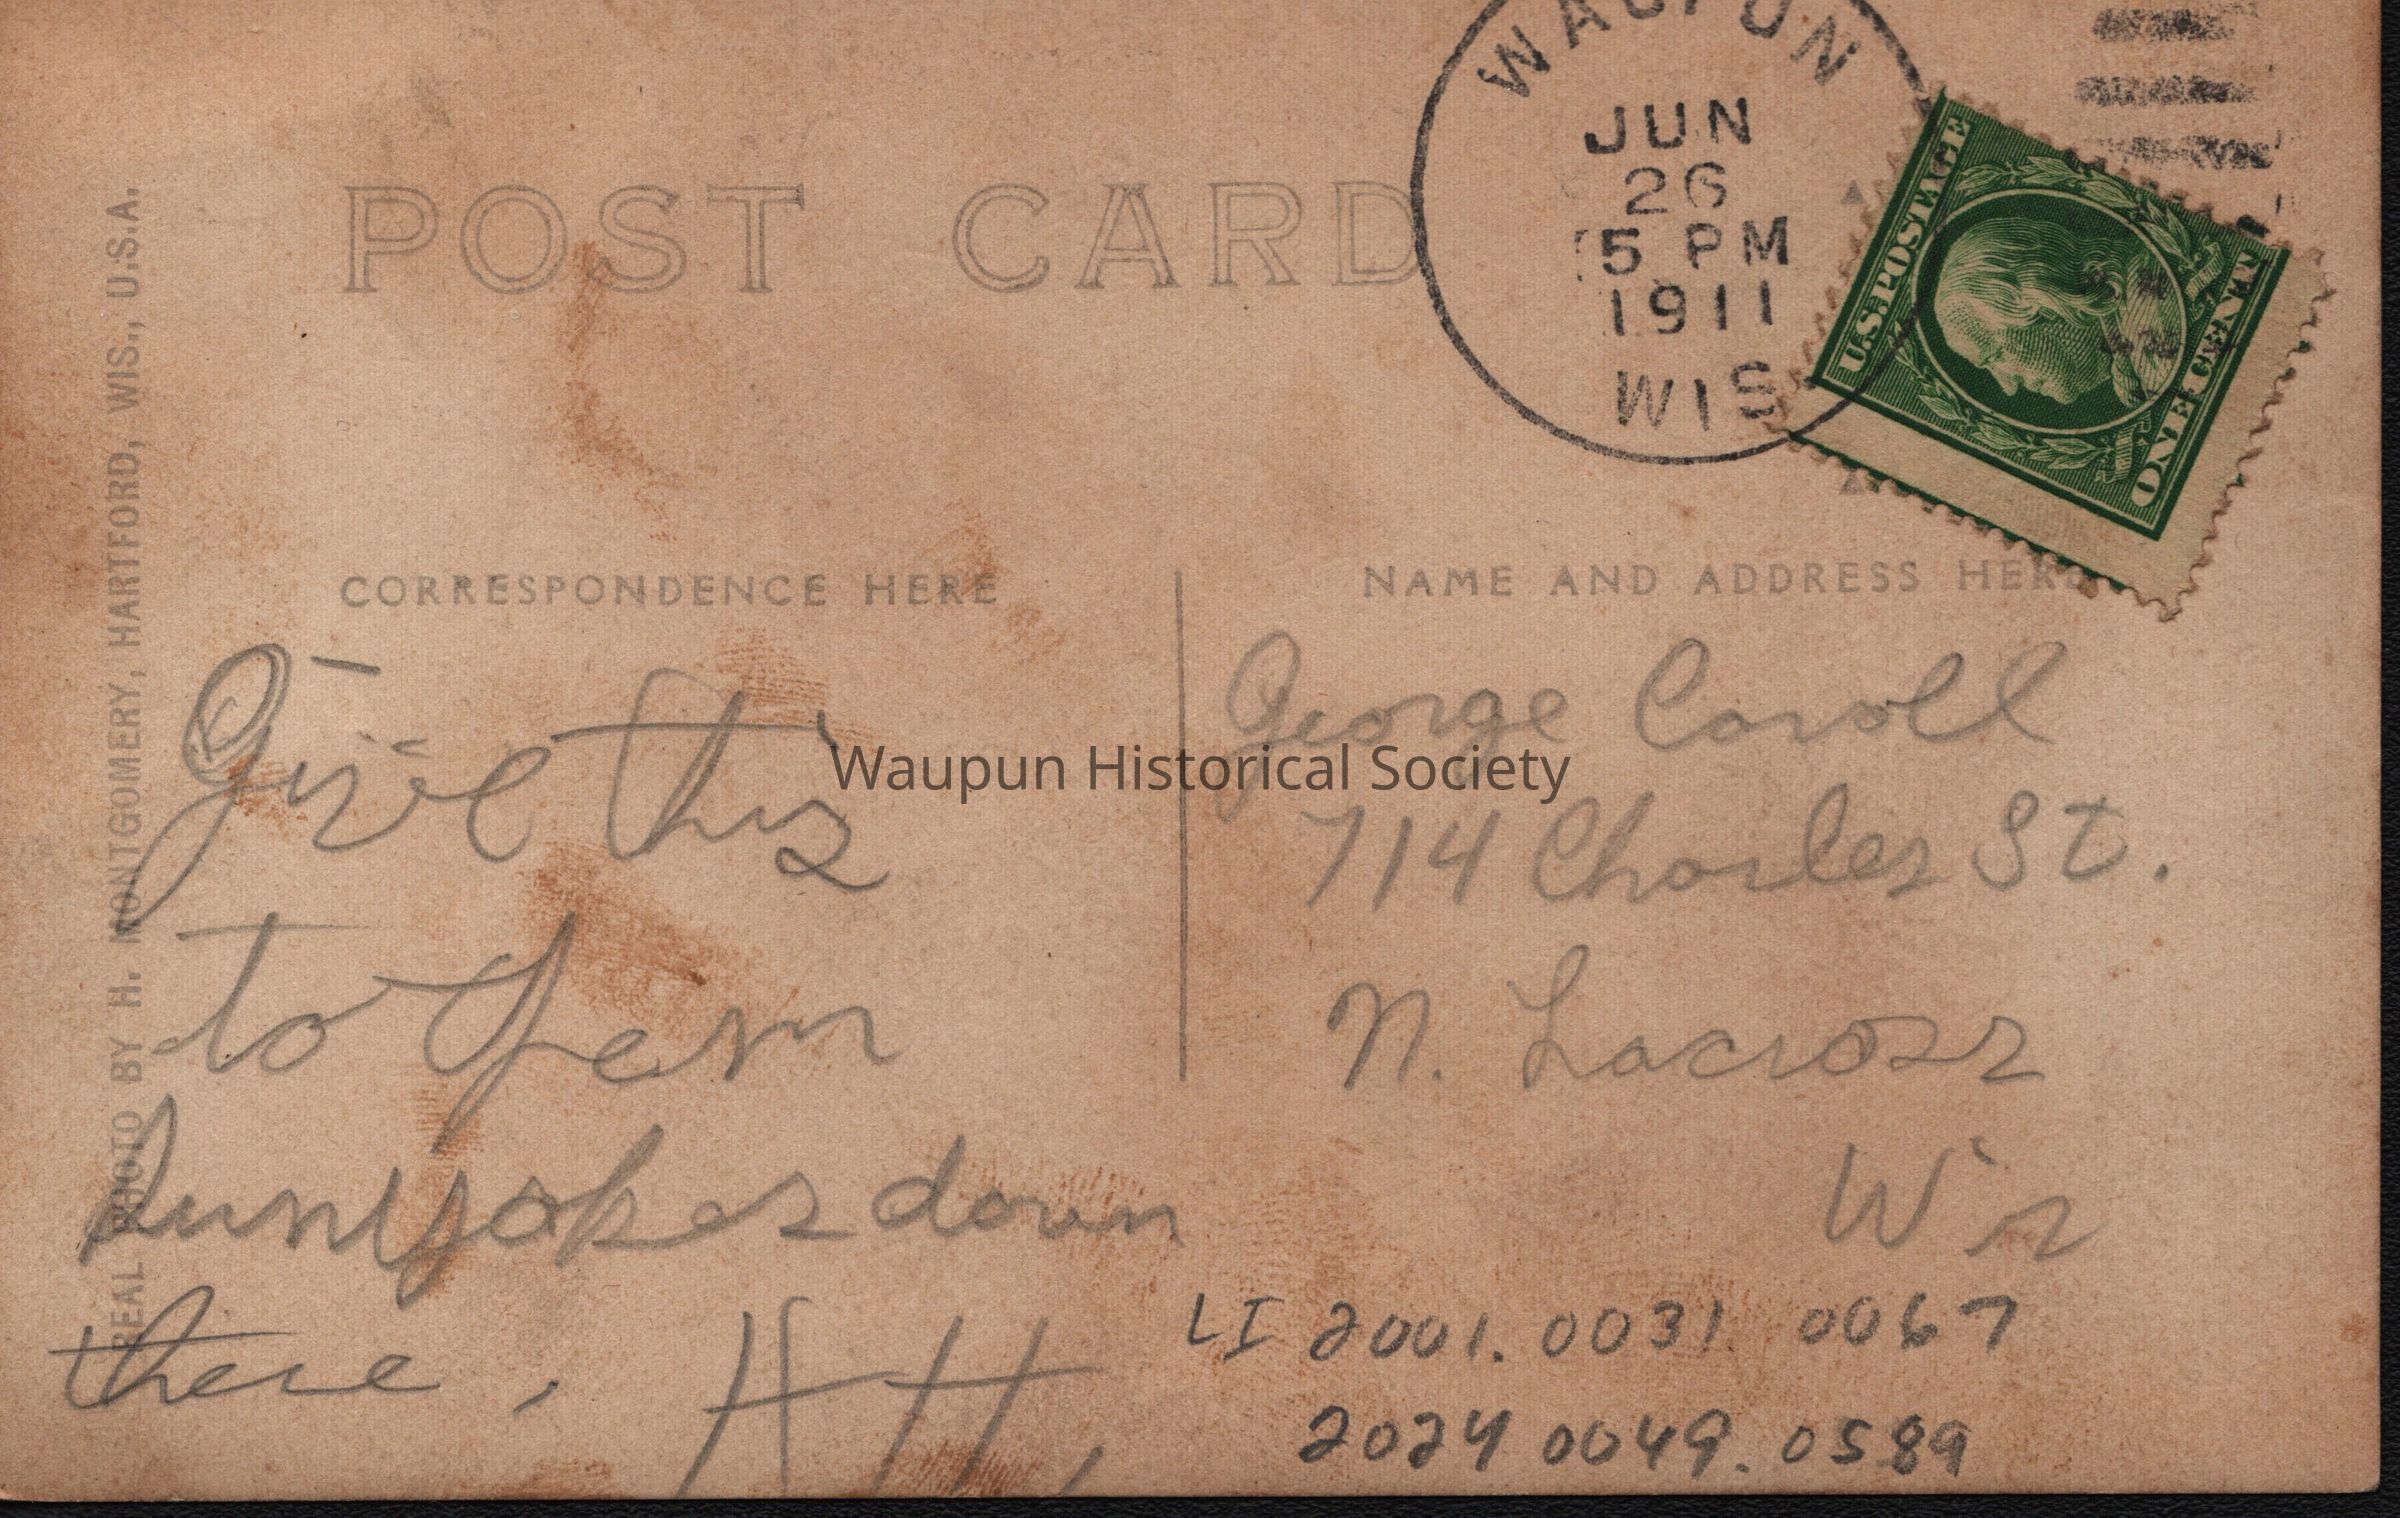 WAUPUN
JUN
26
5 PM
1911
WIS
U.S. POSTAGE
ONE CENT
POST CARD
REAL PHOTO BY H. MONTGOMERY, HARTFORD, WIS., U.S.A.
CORRESPONDENCE HERE
NAME AND ADDRESS HERE
Give this
to
down
there.
H H,
George Caroll
714 Charles St.
N. Lacross
Wis
LI 2001.0031.0067
2024 0049.0589
Waupun Historical Society